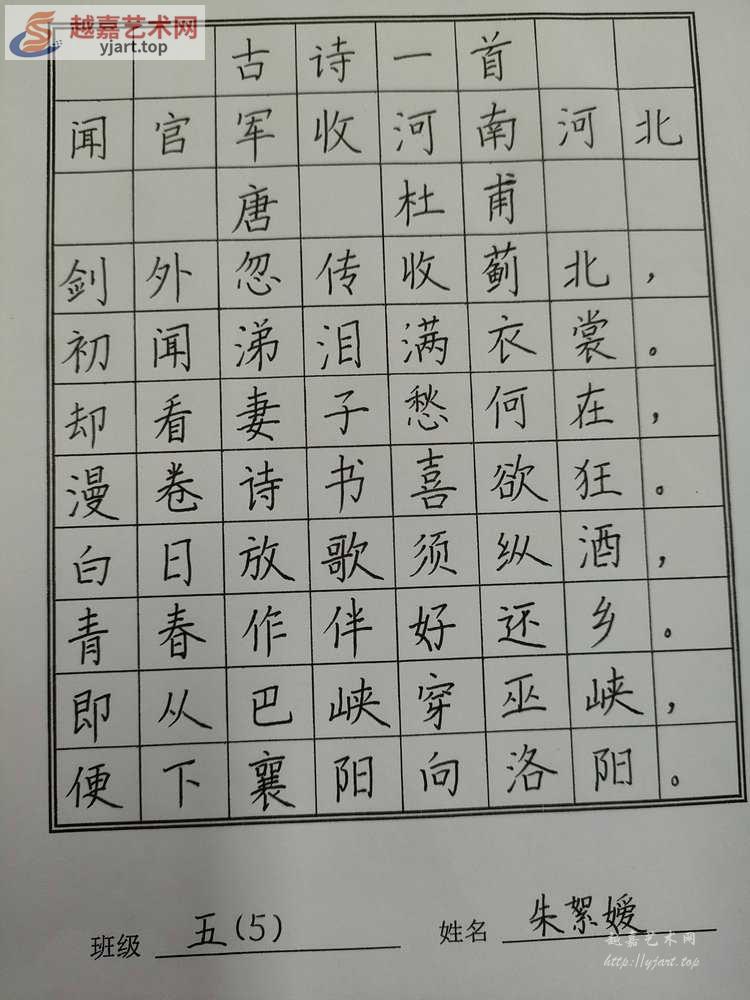 越嘉艺术网
yjart.top
古诗一首
闻官军收河南河北
唐 杜甫
剑外忽传收蓟北，
初闻涕泪满衣裳。
却看妻子愁何在，
漫卷诗书喜欲狂。
白日放歌须纵酒，
青春作伴好还乡。
即从巴峡穿巫峡，
便下襄阳向洛阳。
班级 五(5) 姓名 朱絮嫒
越嘉艺术网
http://yjart.top